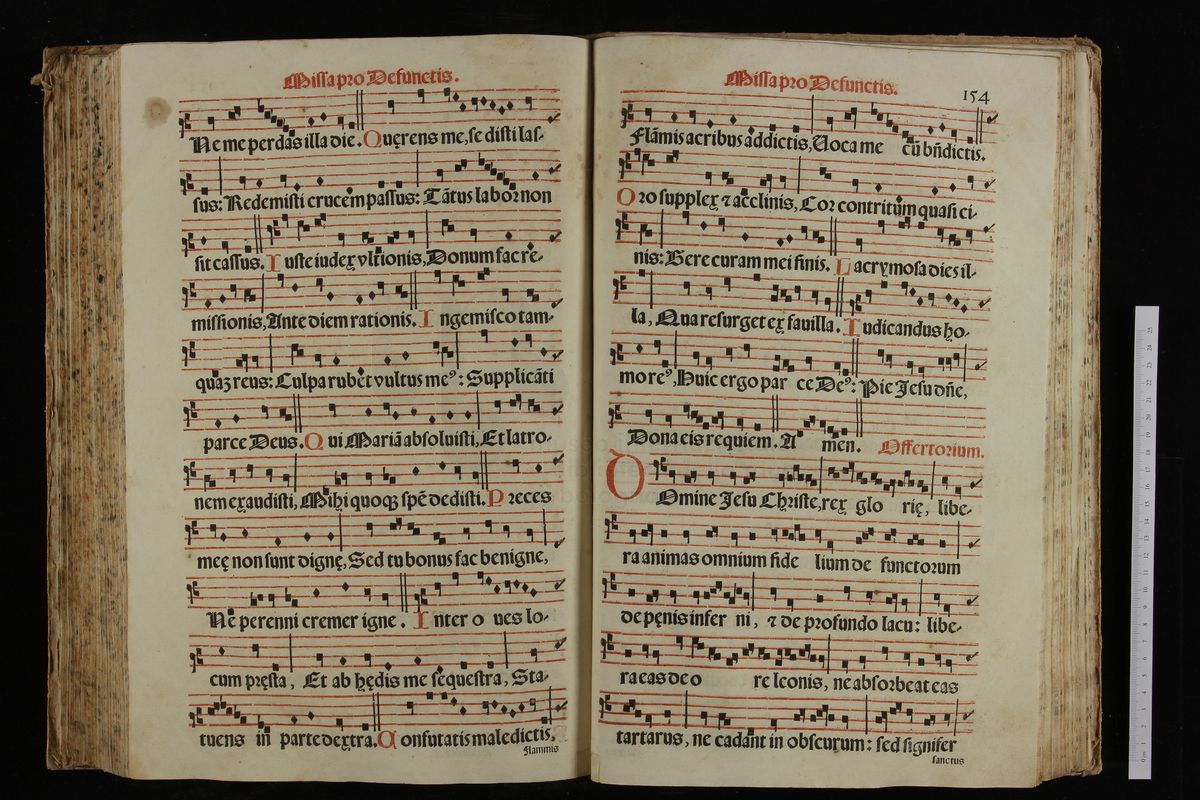 Missa pro Defunctis.
Ne me perdas illa die. Quęrens me, se disti las-
sus: Redemisti crucem passus: Tātus labor non
sit cassus. Iuste iudex vltionis, Donum fac re-
missionis, Ante diem rationis. Ingemisco tam-
quaʒ reus: Culpa rubet vultus meꝰ: Supplicāti
parce Deus. Qui Mariā absoluisti, Et latro-
nem exaudisti, Mihi quoqʒ spē dedisti. Preces
meę non sunt dignę, Sed tu bonus fac benigne,
Ne perenni cremer igne. Inter oues lo-
cum pręsta, Et ab hędis me sequestra, Sta-
tuens in parte dextra. Confutatis maledictis,
flammis
Missa pro Defunctis.
154
Flāmis acribus addictis, Uoca me cū bn̄dictis.
Oro supplex ⁊ acclinis, Cor contritum quasi ci-
nis: Gere curam mei finis. Lacrymosa dies il-
la, Qua resurget ex fauilla. Iudicandus ho-
mo reꝰ, Huic ergo parce Deꝰ: Pie Jesu dn̄e,
Dona eis requiem. Amen. Offertorium.
Domine Jesu Christe, rex glorię, libe-
ra animas omnium fidelium defunctorum
de pęnis inferni, ⁊ de profundo lacu: libe-
ra eas de ore leonis, ne absorbeat eas
tartarus, ne cadant in obscurum: sed signifer
sanctus